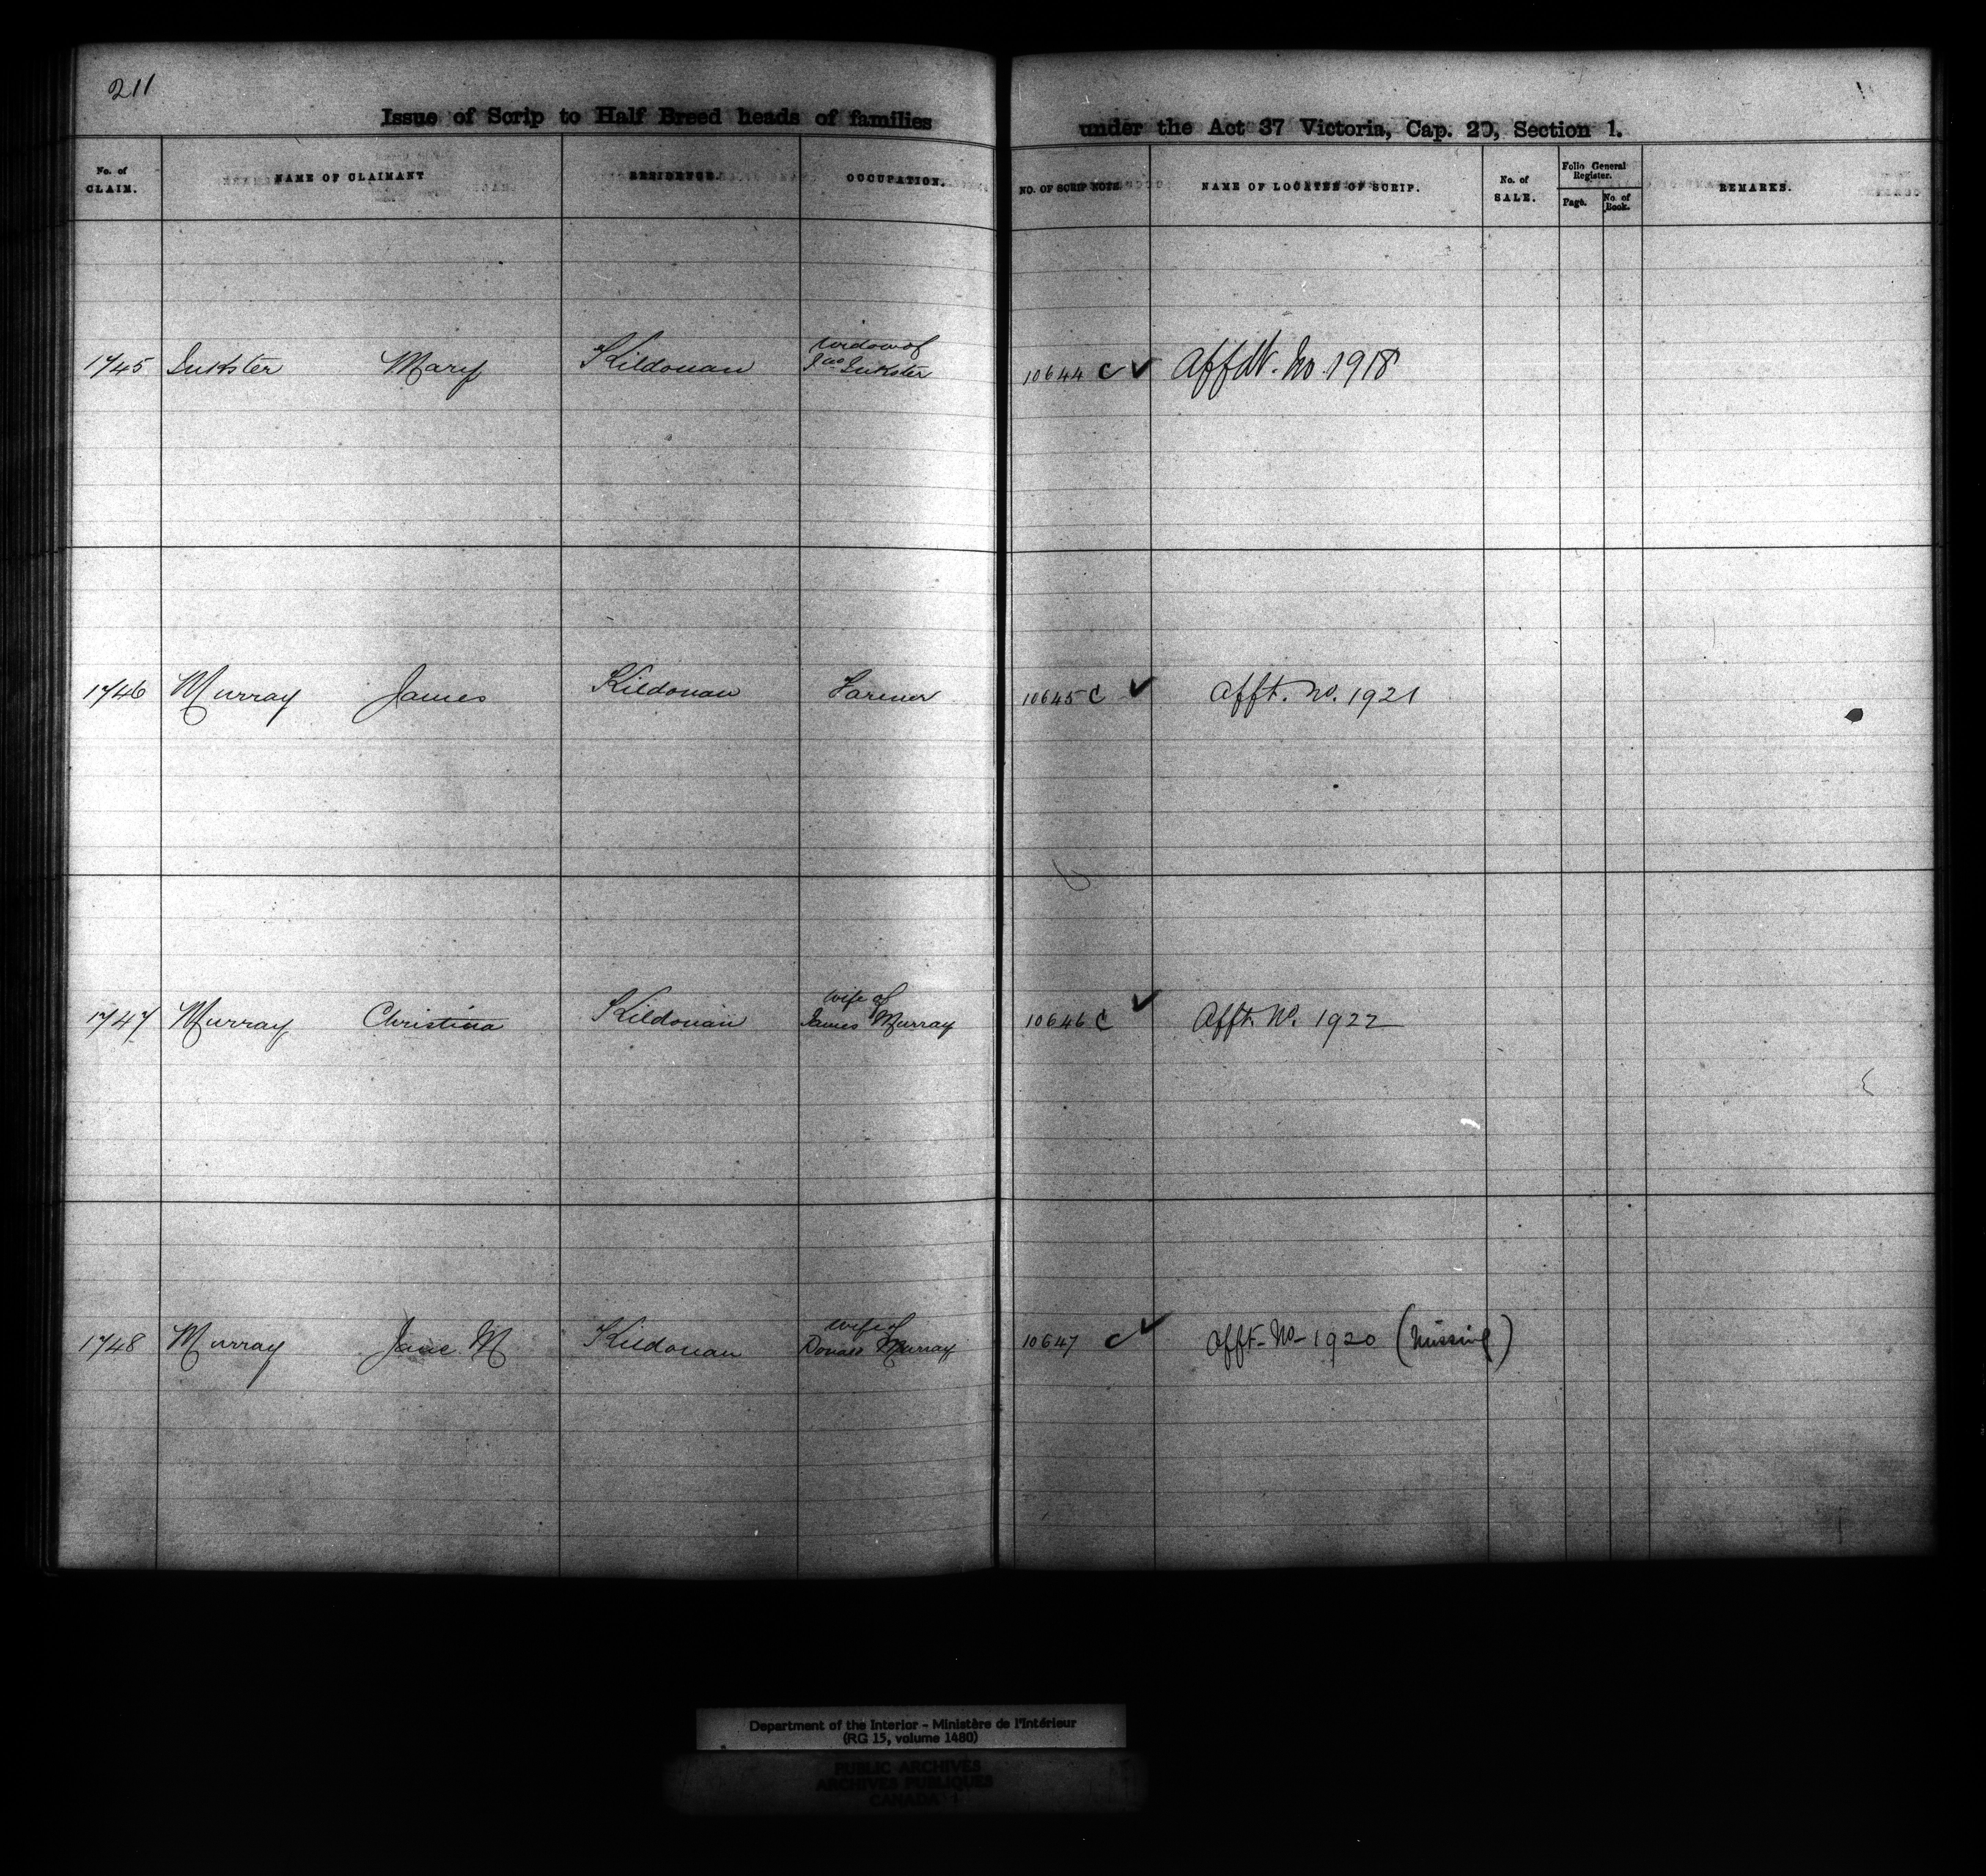 211
Issue of Scrip to Half Breed heads of families under the Act 37 Victoria, Cap. 20, Section 1.
No. of CLAIM. NAME OF CLAIMANT RESIDENCE. OCCUPATION. NO. OF SCRIP NOTE NAME OF LOCATEE OF SCRIP. No. of SALE. Folio General Register. Page. No. of Book. REMARKS.
widow of
1745 Inkster Mary Kildonan Jno Inkster 10644 C ✓ Affdt. No. 1918
1746 Murray James Kildonan Farmer 10645 C ✓ Afft. No. 1921
wife of
1747 Murray Christina Kildonan James Murray 10646 C ✓ Afft. No. 1922
wife of
1748 Murray Jane M Kildonan Donald Murray 10647 C ✓ Afft. No. 1920 (Missing)
Department of the Interior - Ministère de l'Intérieur
(RG 15, volume 1480)
PUBLIC ARCHIVES
ARCHIVES PUBLIQUES
CANADA